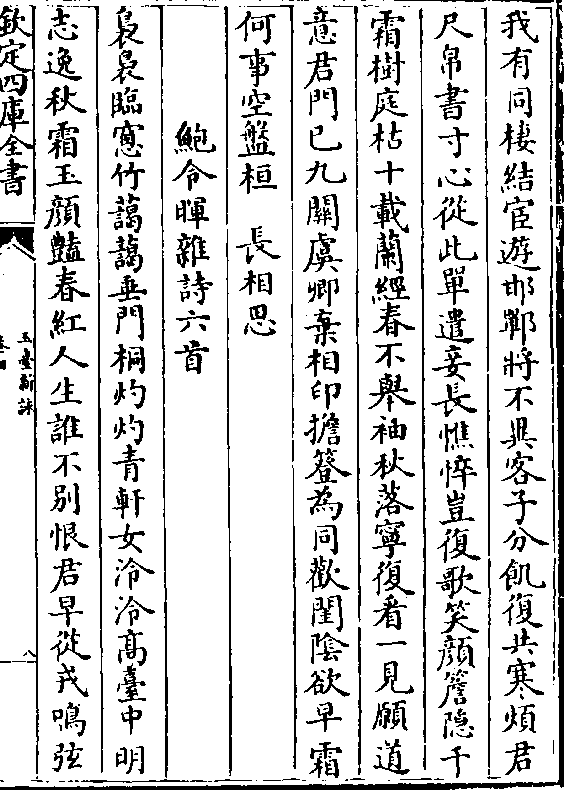 我有同棲結宦遊邯鄲將不異客子分飢復共寒煩君
尺帛書寸心從此單遣妾長憔悴豈復歌笑顔簷隠千
霜樹庭枯十載蘭經春不舉袖秋落寧復看一見願道
意君門已九闗虞卿棄相印擔簦為同歡閨隂欲早霜
何事空盤桓 長相思
鮑令暉雜詩六首
裊裊臨窻竹藹藹垂門桐灼灼青軒女泠泠髙臺中明
志逸秋霜玉顔豔春紅人生誰不别恨君早從戎鳴弦
欽定四庫全書
玉臺新詠
八